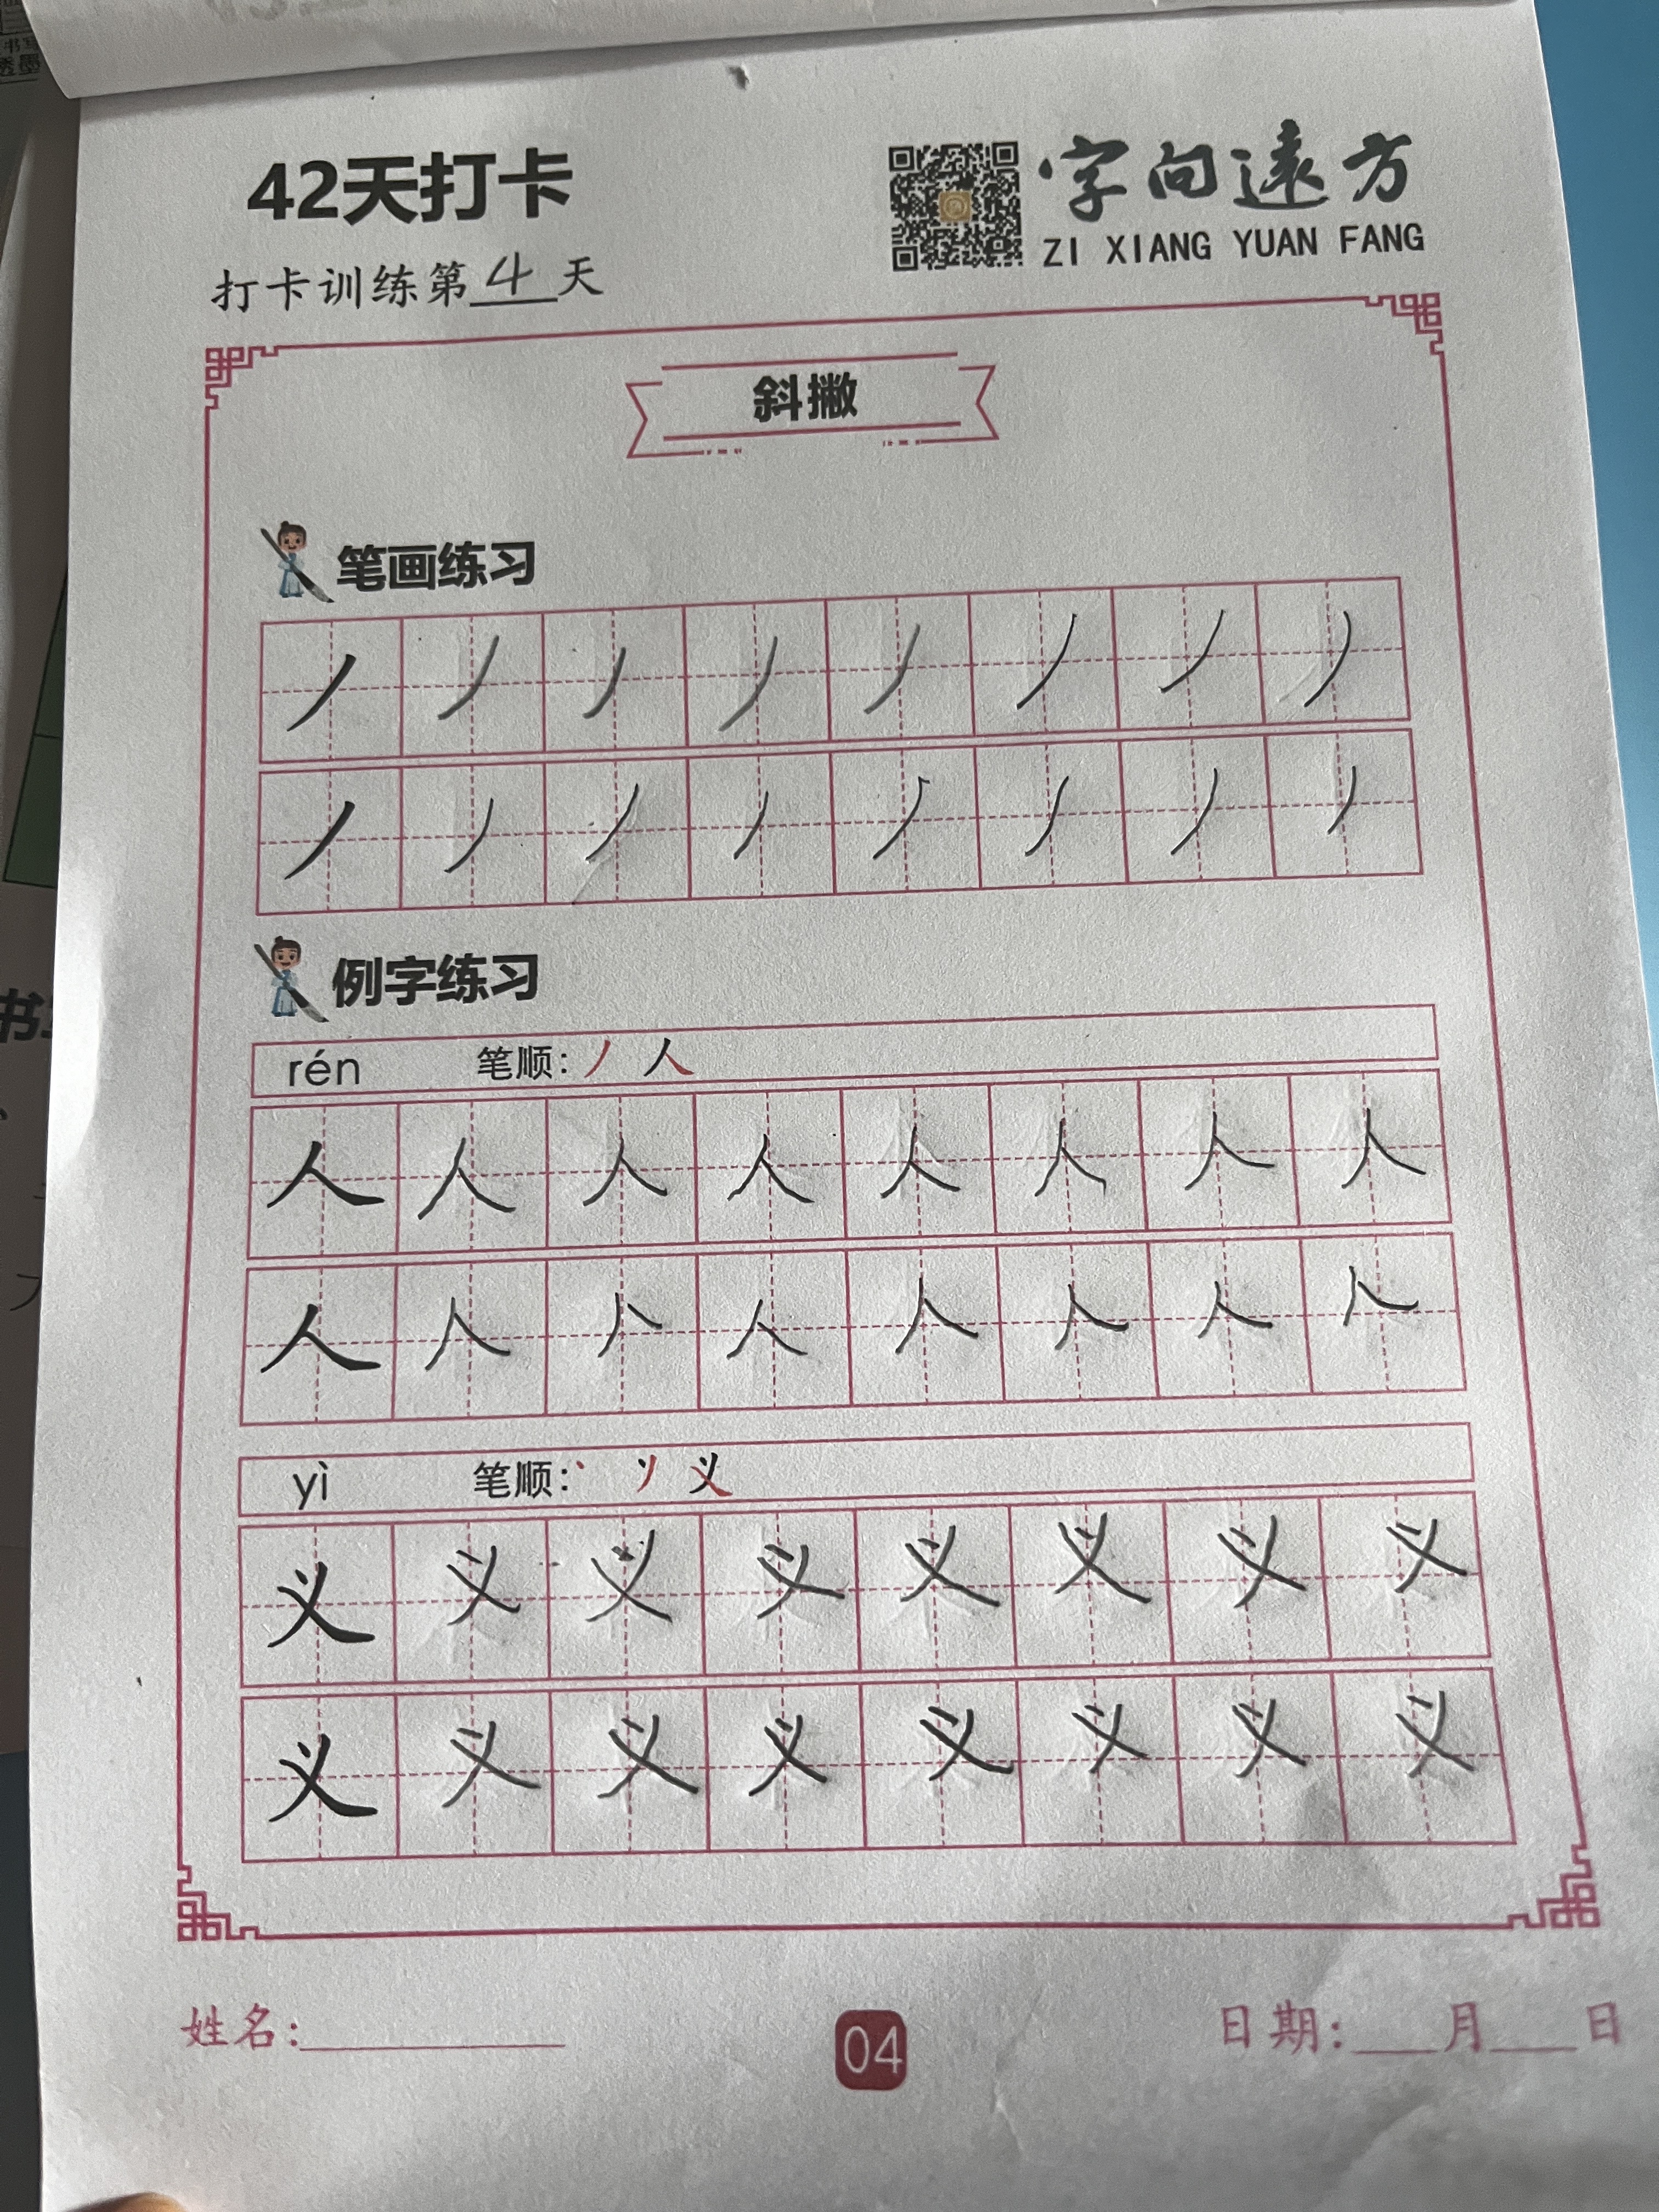 42天打卡
字向遠方
ZI XIANG YUAN FANG
打卡训练第4天
斜撇
笔画练习
丿丿丿丿丿丿丿丿
丿丿丿丿丿丿丿丿
例字练习
rén 笔顺:丿人
人人人人人人人人
人人人人人人人人
yì 笔顺:丶 ソ 义
义义义义义义义义
义义义义义义义义
姓名:
04
日期: 月 日